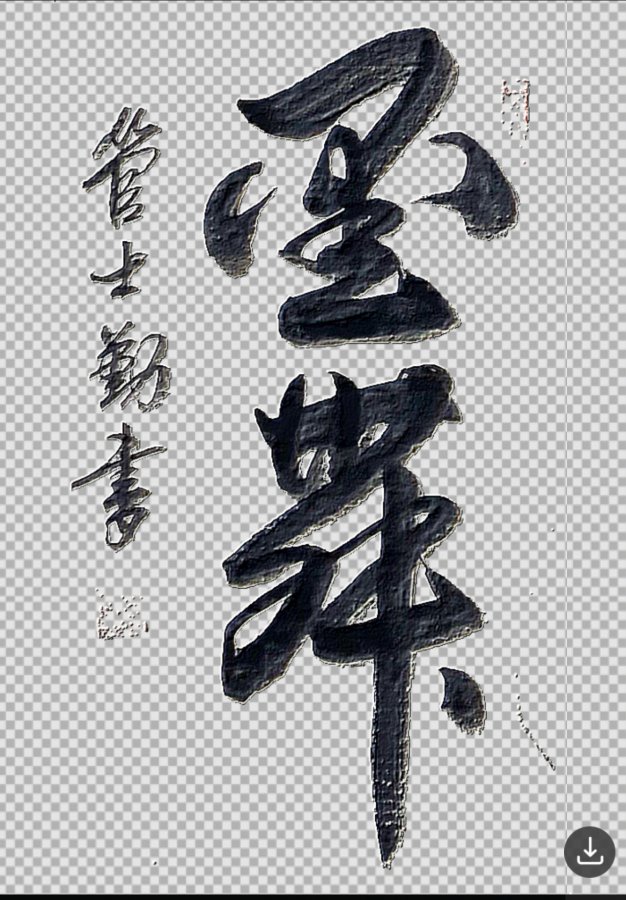 墨舞
管士勤書